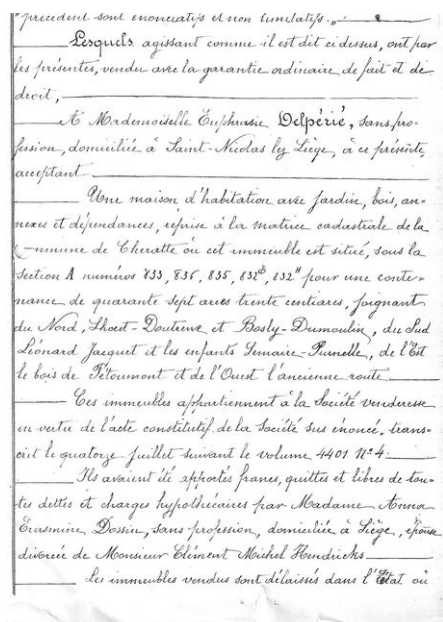 "précédent sont énonciatifs et non limitatifs."
Lesquels agissant comme il est dit ci dessus, ont par
les présentes, vendu avec la garantie ordinaire de fait et de
droit,
A Mademoiselle Euphrasie Delpérié, sans pro-
fession, domiciliée à Saint-Nicolas lez Liège, à ce présente,
acceptant
Une maison d'habitation avec jardin, bois, an-
nexes et dépendances, reprise à la matrice cadastrale de la
Commune de Cheratte où cet immeuble est situé, sous la
section A numéros 833, 836, 835, 832 832 pour une conte-
nance de quarante sept ares trente centiares, joignant
du Nord, Lhoest-Doutreve et Bosly-Dumoulin, du Sud
Léonard Jacquet et les enfants Lemaire-Purnelle, de l'Est
le bois de Pétoumont et de l'Ouest l'ancienne route
Ces immeubles appartiennent à la Société venderesse
en vertu de l'acte constitutif de la Société sus énoncé, trans-
crit le quatorze juillet suivant le volume 4401 N° 4.
Ils avaient été apportés francs, quittes et libres de tou-
tes dettes et charges hypothécaires par Madame Anna
Erasmine Dossin, sans profession, domiciliée à Liège, épouse
divorcée de Monsieur Clément Michel Hendricks
Les immeubles vendus sont délaissés dans l'Etat où